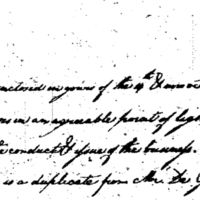 enclosed in yours of the 4th & answer
in an agreeable point of light
conduct & issue of the business.
is a duplicate from Mr. De